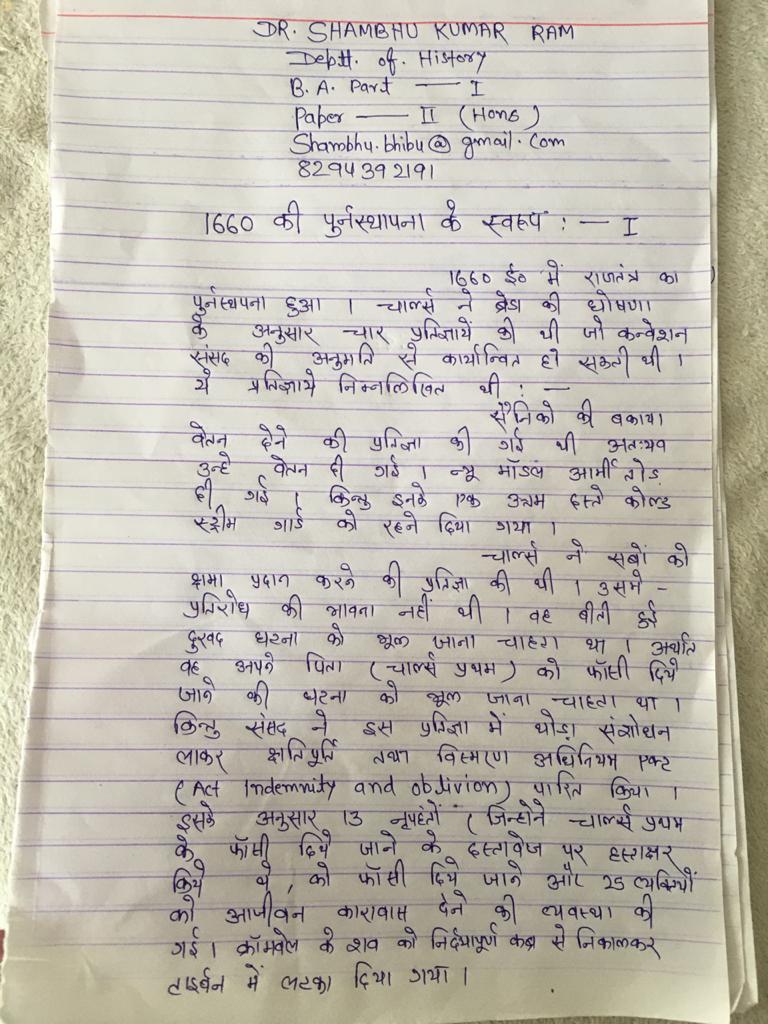 DR. SHAMBHU KUMAR RAM
Deptt. of. History
B. A. Part — I
Paper — II (Hons)
Shambhu.bhibu@gmail.com
8294392191
1660 की पुर्नस्थापना के स्वरूप : — I
1660 ई० में राजतंत्र का
पुर्नस्थपना हुआ । चार्ल्स ने ब्रेडा की घोषणा
के अनुसार चार प्रतिज्ञायें की थी जो कन्वेशन
संसद की अनुमति से कार्यान्वित हो सकती थी ।
ये प्रतिज्ञाये निम्नलिखित थी : —
सैनिको की बकाया
वेतन देने की प्रतिज्ञा की गई थी अतःयव
उन्हे वेतन दी गई । न्यू मॉडल आर्मी तोड़
दी गई । किन्तु इनके एक उत्तम दस्ते कोल्ड
स्ट्रीम गार्ड को रहने दिया गया ।
चार्ल्स ने सबों को
क्षमा प्रदान करने की प्रतिज्ञा की थी । उसमे -
प्रतिरोध की भावना नहीं थी । वह बीती हुई
दुखद घटना को भूल जाना चाहता था । अर्थात
वह अपने पिता (चार्ल्स प्रथम) को फॉसी दिये
जाने की घटना को भूल जाना चाहता था ।
किन्तु संसद ने इस प्रतिज्ञा में थोड़ा संशोधन
लाकर क्षतिपूर्ति तथा विस्मरण अधिनियम एक्ट
(Act Indemnity and oblivion) पारित किया ।
इसके अनुसार 13 नृपहंतों (जिन्होने चार्ल्स प्रथम
के फॉसी दिये जाने के दस्तावेज पर हस्ताक्षर
किये थे , को फॉसी दिये जाने और 25 व्यक्तियों
को आजीवन कारावास देने की व्यवस्था की
गई । क्रॉमवेल के शव को निर्दयापूर्ण कब्र से निकालकर
टाइर्बन में लटका दिया गया ।